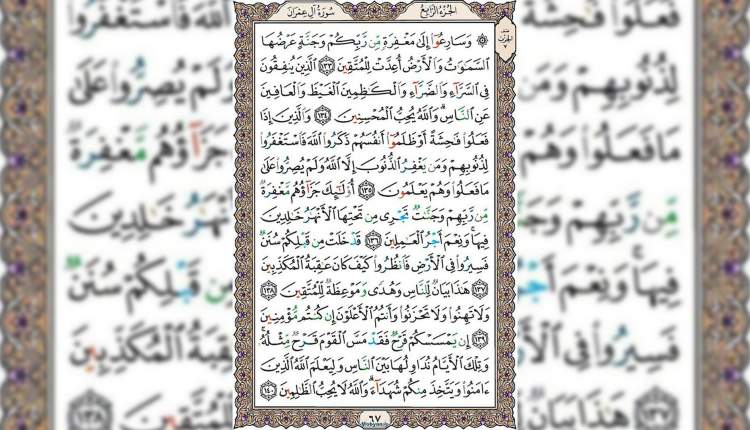 سُورَةُ آلِ عِمْرَانَ
الجُزْءُ الرَّابِعُ
۞ وَسَارِعُوٓا۟ إِلَىٰ مَغْفِرَةٍ مِّن رَّبِّكُمْ وَجَنَّةٍ عَرْضُهَا
ٱلسَّمَٰوَٰتُ وَٱلْأَرْضُ أُعِدَّتْ لِلْمُتَّقِينَ ١٣٣ ٱلَّذِينَ يُنفِقُونَ
فِى ٱلسَّرَّآءِ وَٱلضَّرَّآءِ وَٱلْكَٰظِمِينَ ٱلْغَيْظَ وَٱلْعَافِينَ
عَنِ ٱلنَّاسِ ۗ وَٱللَّهُ يُحِبُّ ٱلْمُحْسِنِينَ ١٣٤ وَٱلَّذِينَ إِذَا
فَعَلُوا۟ فَٰحِشَةً أَوْ ظَلَمُوٓا۟ أَنفُسَهُمْ ذَكَرُوا۟ ٱللَّهَ فَٱسْتَغْفَرُوا۟
لِذُنُوبِهِمْ وَمَن يَغْفِرُ ٱلذُّنُوبَ إِلَّا ٱللَّهُ وَلَمْ يُصِرُّوا۟ عَلَىٰ
مَا فَعَلُوا۟ وَهُمْ يَعْلَمُونَ ١٣٥ أُو۟لَٰٓئِكَ جَزَآؤُهُم مَّغْفِرَةٌ
مِّن رَّبِّهِمْ وَجَنَّٰتٌ تَجْرِى مِن تَحْتِهَا ٱلْأَنْهَٰرُ خَٰلِدِينَ
فِيهَا ۚ وَنِعْمَ أَجْرُ ٱلْعَٰمِلِينَ ١٣٦ قَدْ خَلَتْ مِن قَبْلِكُمْ سُنَنٌ
فَسِيرُوا۟ فِى ٱلْأَرْضِ فَٱنظُرُوا۟ كَيْفَ كَانَ عَٰقِبَةُ ٱلْمُكَذِّبِينَ
١٣٧ هَٰذَا بَيَانٌ لِّلنَّاسِ وَهُدًى وَمَوْعِظَةٌ لِّلْمُتَّقِينَ ١٣٨
وَلَا تَهِنُوا۟ وَلَا تَحْزَنُوا۟ وَأَنتُمُ ٱلْأَعْلَوْنَ إِن كُنتُم مُّؤْمِنِينَ
١٣٩ إِن يَمْسَسْكُمْ قَرْحٌ فَقَدْ مَسَّ ٱلْقَوْمَ قَرْحٌ مِّثْلُهُۥ ۚ
وَتِلْكَ ٱلْأَيَّامُ نُدَاوِلُهَا بَيْنَ ٱلنَّاسِ وَلِيَعْلَمَ ٱللَّهُ ٱلَّذِينَ
ءَامَنُوا۟ وَيَتَّخِذَ مِنكُمْ شُهَدَآءَ ۗ وَٱللَّهُ لَا يُحِبُّ ٱلظَّٰلِمِينَ ١٤٠
٦٧